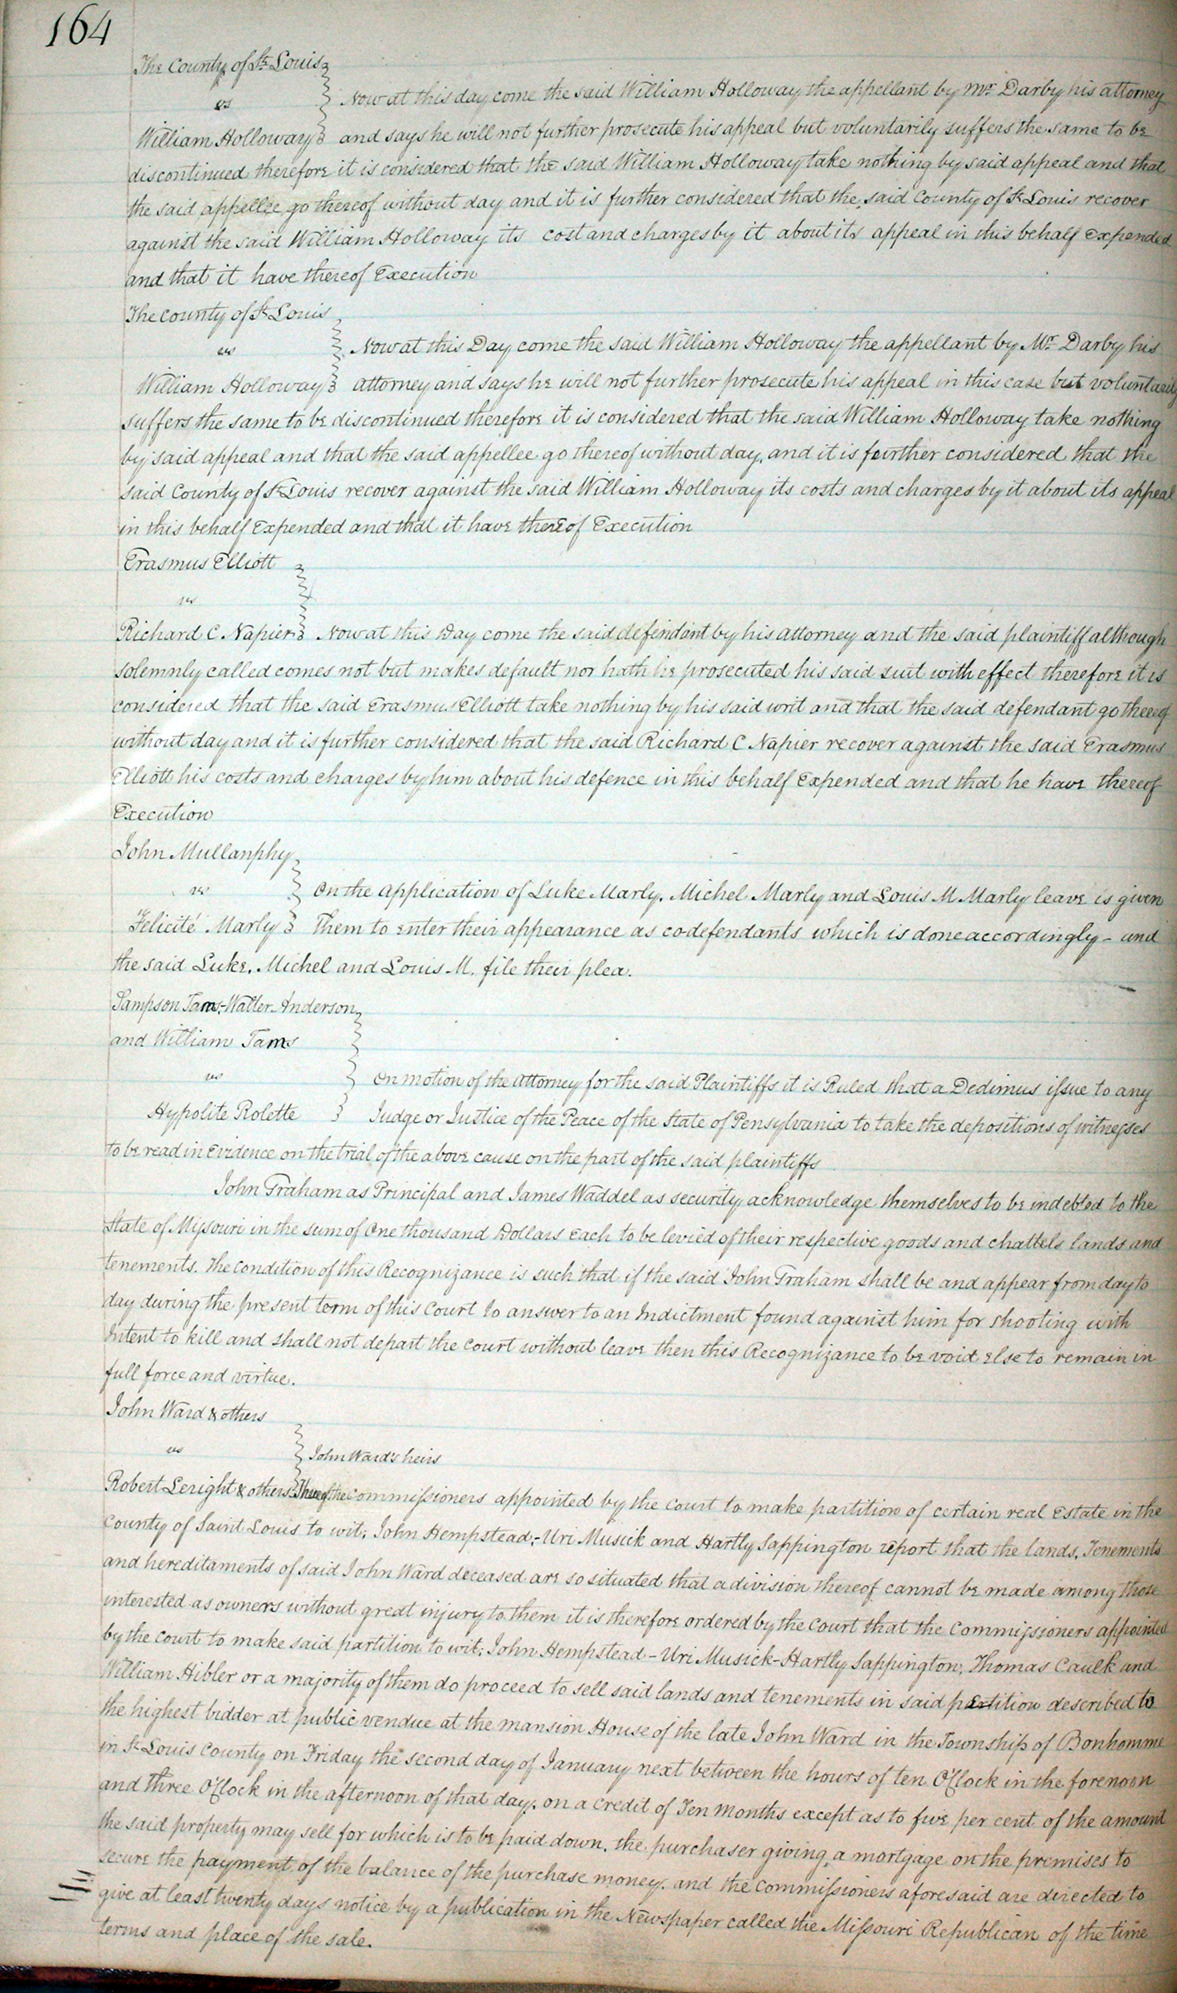 164
The County of St Louis
vs
Now at this day come the said William Holloway the appellant by Mr Darby his attorney
William Holloway and says he will not further prosecute his appeal but voluntarily suffers the same to be
discontinued therefore it is considered that the said William Holloway take nothing by said appeal and that
the said appellee go thereof without day and it is further considered that the said County of St Louis recover
against the said William Holloway its cost and charges by it about its appeal in this behalf Expended
and that it have thereof Execution
The County of St Louis
vs
Now at this Day come the said William Holloway the appellant by Mr Darby his
William Holloway attorney and says he will not further prosecute his appeal in this case but voluntarily
suffers the same to be discontinued therefore it is considered that the said William Holloway take nothing
by said appeal and that the said appellee go thereof without day, and it is further considered that the
said County of St Louis recover against the said William Holloway its costs and charges by it about its appeal
in this behalf Expended and that it have thereof Execution
Erasmus Elliott
vs
Richard C Napier Now at this Day come the said defendant by his attorney and the said plaintiff although
solemnly called comes not but makes default nor hath he prosecuted his said suit with effect therefore it is
considered that the said Erasmus Elliott take nothing by his said writ and that the said defendant go thereof
without day and it is further considered that the said Richard C Napier recover against the said Erasmus
Elliott his costs and charges by him about his defence in this behalf Expended and that he have thereof
Execution
John Mullanphy
vs
On the application of Luke Marly, Michel Marly and Louis M Marly leave is given
Felicité Marly Them to enter their appearance as codefendants which is done accordingly - and
the said Luke, Michel and Louis M. file their plea.
Sampson Tams, Walter Anderson
and William Tams
vs
On motion of the Attorney for the said Plaintiffs it is Ruled that a Dedimus issue to any
Hypolite Rolette Judge or Justice of the Peace of the State of Pensylvania to take the depositions of witnesses
to be read in Evidence on the trial of the above cause on the part of the said plaintiffs
John Graham as Principal and James Waddel as security acknowledge themselves to be indebted to the
State of Missouri in the sum of One thousand Dollars Each to be levied of their respective goods and chattels lands and
tenements. The Condition of this Recognizance is such that if the said John Graham shall be and appear from day to
day during the present term of this Court to answer to an Indictment found against him for shooting with
Intent to kill and shall not depart the Court without leave then this Recognizance to be void Else to remain in
full force and virtue.
John Ward & others
vs
John Ward's heirs
Robert Leright & others Three of the Commissioners appointed by the Court to make partition of certain real Estate in the
County of Saint Louis to wit; John Hempstead,- Uri Musick and Hartly Sappington report that the lands, Tenements
and hereditaments of said John Ward deceased are so situated that a division thereof cannot be made among those
interested as owners without great injury to them it is therefore ordered by the Court that the Commissioners appointed
by the Court to make said partition to wit; John Hempstead - Uri Musick - Hartly Sappington, Thomas Caulk and
William Hibler or a majority of them do proceed to sell said lands and tenements in said petition described to
the highest bidder at public vendue at the mansion House of the late John Ward in the Township of Bonhomme
in St Louis County on Friday the second day of January next between the hours of ten O'Clock in the forenoon
and three O'Clock in the afternoon of that day, on a credit of Ten months except as to five per cent of the amount
the said property may sell for which is to be paid down, the purchaser giving a mortgage on the premises to
secure the payment of the balance of the purchase money, and the Commissioners aforesaid are directed to
give at least twenty days notice by a publication in the Newspaper called the Missouri Republican of the time
terms and place of the sale.